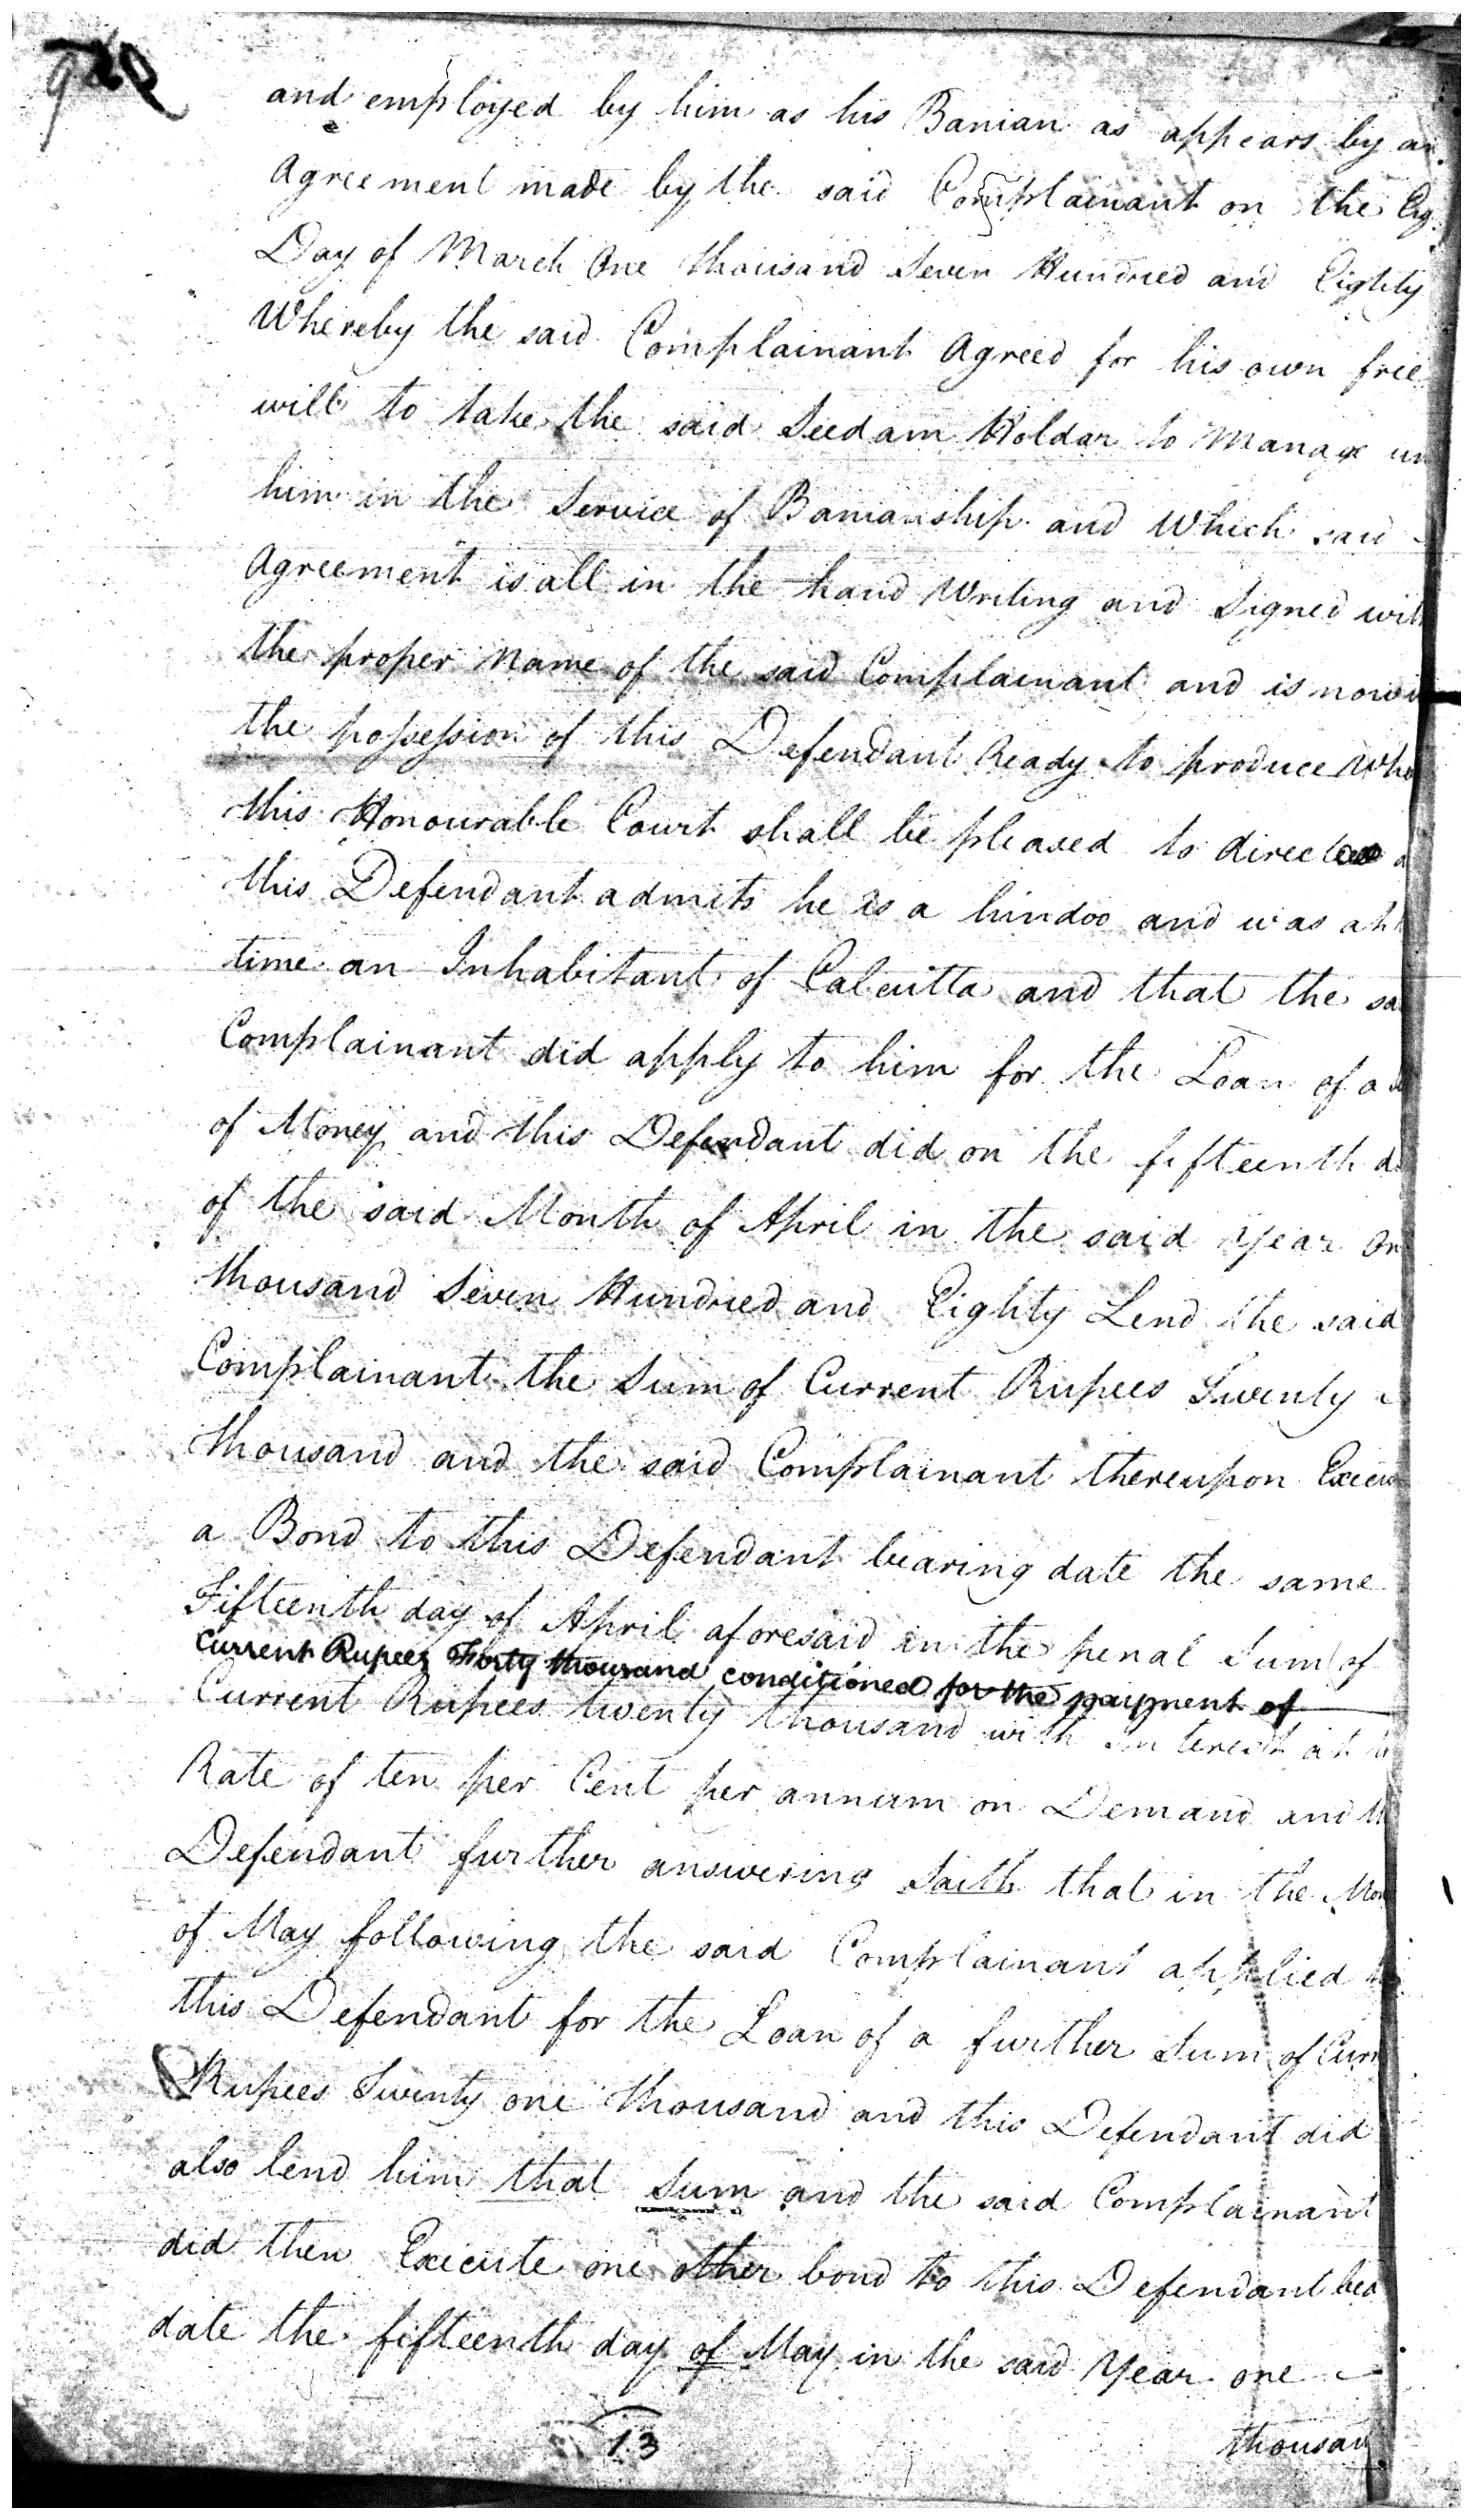 and employed by him as his Banian as appears by an
Agreement made by the said Complainant on the Eig
Day of March One thousand Seven Hundred and Eighty
Whereby the said Complainant Agreed for his own free
will to take the said Seedam Holdar to Manage un
him in the Service of Banianship and Which said
Agreement is all in the hand Writing and Signed with
the proper Name of the said Complainant and is now i
the possession of this Defendant Ready to produce Whe
this Honourable Court shall be pleased to direct a
this Defendant admits he is a hindoo and was at t
time an Inhabitant of Calcutta and that the sa
Complainant did apply to him for the Loan of a S
of Money and this Defendant did on the fifteenth d
of the said Month of April in the said year On
thousand Seven Hundred and Eighty Lend the said
Complainant the Sum of Current Rupees Twenty
thousand and the said Complainant thereupon Execu
a Bond to this Defendant bearing date the same
Fifteenth day of April aforesaid in the penal Sum of
Current Rupees Forty thousand conditioned for the payment of
Current Rupees twenty thousand with Interest at t
Rate of ten per Cent per annum on Demand and th
Defendant further answering Saith that in the Mon
of May following the said Complainant applied t
this Defendant for the Loan of a further Sum of Curr
Rupees Twenty one thousand and this Defendant did
also lend him that Sum and the said Complainant
did then Execute one other bond to this Defendant bea
date the fifteenth day of May in the said Year one
13
thousan